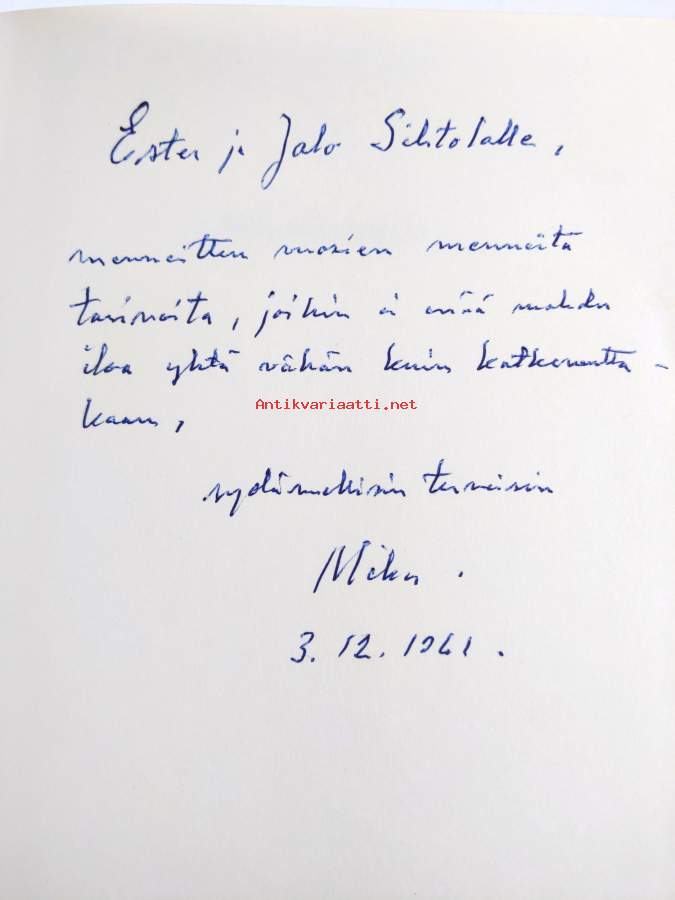 Ester ja Jalo Sihtolalle,
menneitten vuosien menneitä
tarinoita, joihin ei enää mahdu
iloa yhtä vähän kuin katkeruutta-
kaan,
Antikvariaatti.net
sydämellisin terveisin
Mika.
3.12.1961.